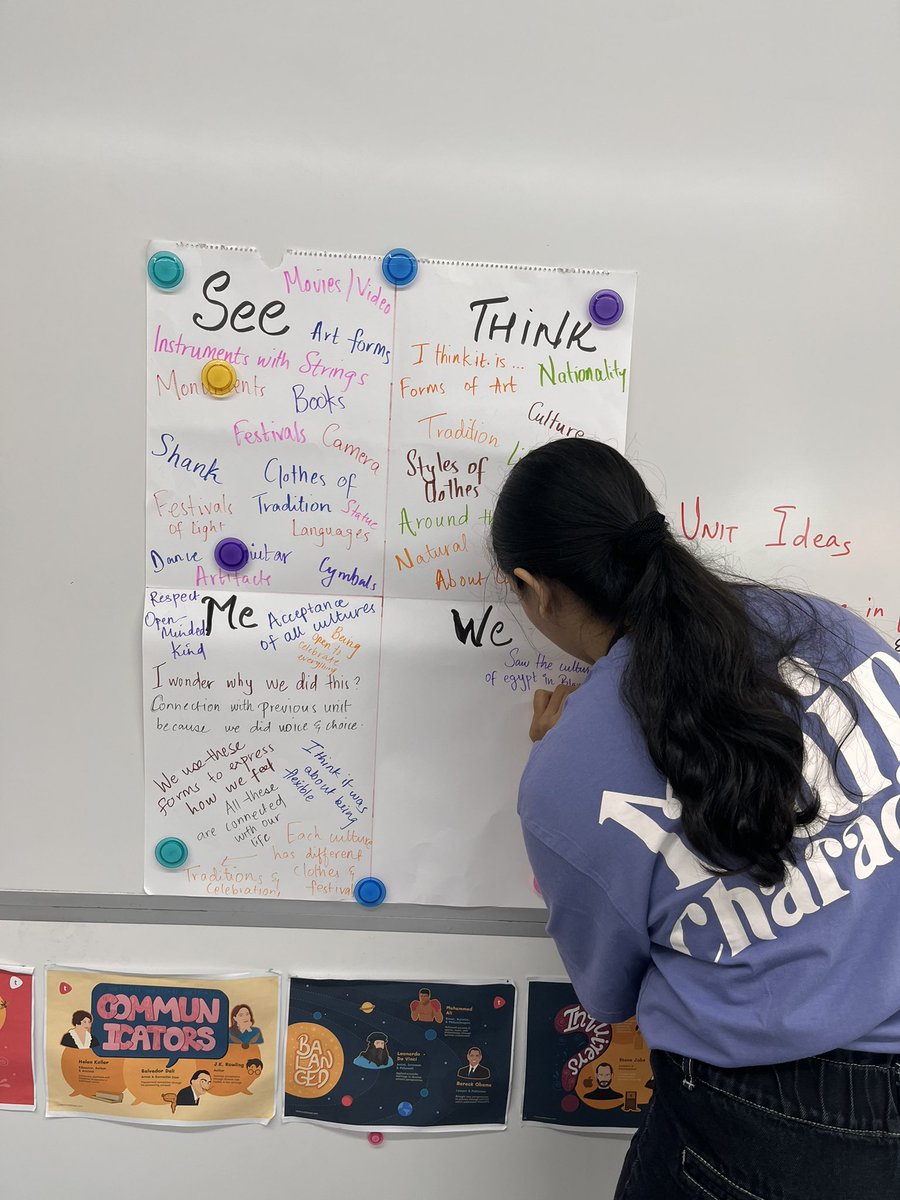 See
Movies/Video
Art forms
Instruments with Strings
Books
Festivals
Camera
Shank
Clothes of
Tradition
Statue
Festivals
of Light
Languages
Dance
Artifacts
Cymbals
THINK
I think it is...
Nationality
Forms of Art
Culture
Tradition
Styles of
Clothes
Around
Natural
About
Me
Respect
Open-
Minded
Kind
Acceptance
of all cultures
Being
open to
celebrate
everything
I wonder why we did this?
Connection with previous unit
because we did voice & choice.
We use these
forms to express
how we feel
I think it was
about being
flexible
All these
are connected
with our
life
Each culture
has different
clothes &
festival
Traditions &
Celebration,
We
Saw the
of egypt in
UNIT Ideas
in
COMMUN
ICATORS
Helen Keller
Salvador Dali
J.K. Rowling
BALANCED
Mohammed
Ali
Leonardo
Da Vinci
Barack Obama
Steve Jobs